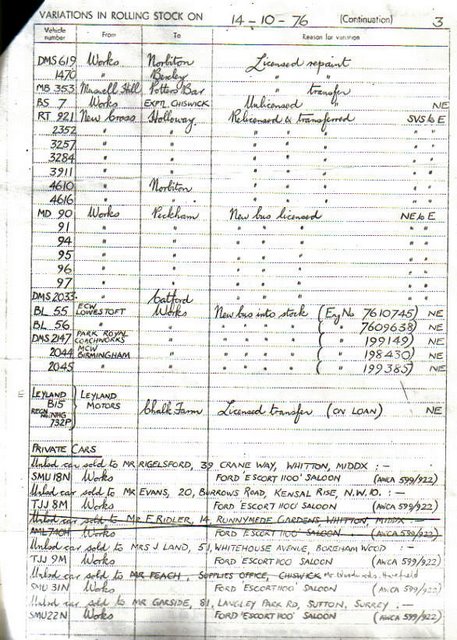 VARIATIONS IN ROLLING STOCK ON 14-10-76 (Continuation) 3
Vehicle number From To Reason for variation
DMS 619 Works Norbiton Licensed repaint
1470 " Bexley " "
MB 353 Muswell Hill Potters Bar " transfer
BS 7 Works EXPTL CHISWICK Unlicensed " NE
RT 921 New Cross Holloway Relicensed & transferred SVS to E
2352 " " " " " " "
3257 " " " " " " "
3284 " " " " " " "
3911 " " " " " " "
4610 " Norbiton " " " " "
4616 " " " " " " "
MD 90 Works Peckham New bus licensed NE to E
91 " " " " " " "
94 " " " " " " "
95 " " " " " " "
96 " " " " " " "
97 " " " " " " "
DMS 2033 " Catford " " " " "
BL 55 ECW LOWESTOFT Works New bus into stock (Eng No 7610745) NE
BL 56 " " " " " " ( " 7609638) NE
DMS 2147 PARK ROYAL COACHWORKS " " " " " ( " 199149) NE
2044 MCW BIRMINGHAM " " " " " ( " 198430) NE
2045 " " " " " " ( " 199385) NE
LEYLAND B15 REGN No. NHG 732P LEYLAND MOTORS Chalk Farm Licensed transfer (ON LOAN) NE
PRIVATE CARS
Unlsd car sold to MR RIGELSFORD, 39 CRANE WAY, WHITTON, MIDDX :-
SMU 18N Works FORD ESCORT 1100' SALOON (AWCA 599/922)
Unlsd car sold to MR EVANS, 20, BURROWS ROAD, KENSAL RISE, N.W.10. :-
TJJ 8M Works FORD ESCORT 1100' SALOON (AWCA 599/922)
Unlsd car sold to Mr F RIDLER, 14, RUNNYMEDE GARDENS, WHITTON, MIDDX :-
Works FORD ESCORT 1100 SALOON (AWCA 599/922)
Unlsd car sold to MRS J LAND, 51, WHITEHOUSE AVENUE, BOREHAM WOOD :-
TJJ 9M Works FORD ESCORT 1100 SALOON (AWCA 599/922)
Unlsd car sold to MR PEACH, SUPPLIES OFFICE, CHISWICK
SMU 31N Works FORD ESCORT 1100' SALOON (AWCA 599/922)
Unlsd car sold to MR GARSIDE, 81, LANGLEY PARK RD, SUTTON, SURREY :-
SMU 22N Works FORD 'ESCORT 1100' SALOON (AWCA 599/922)